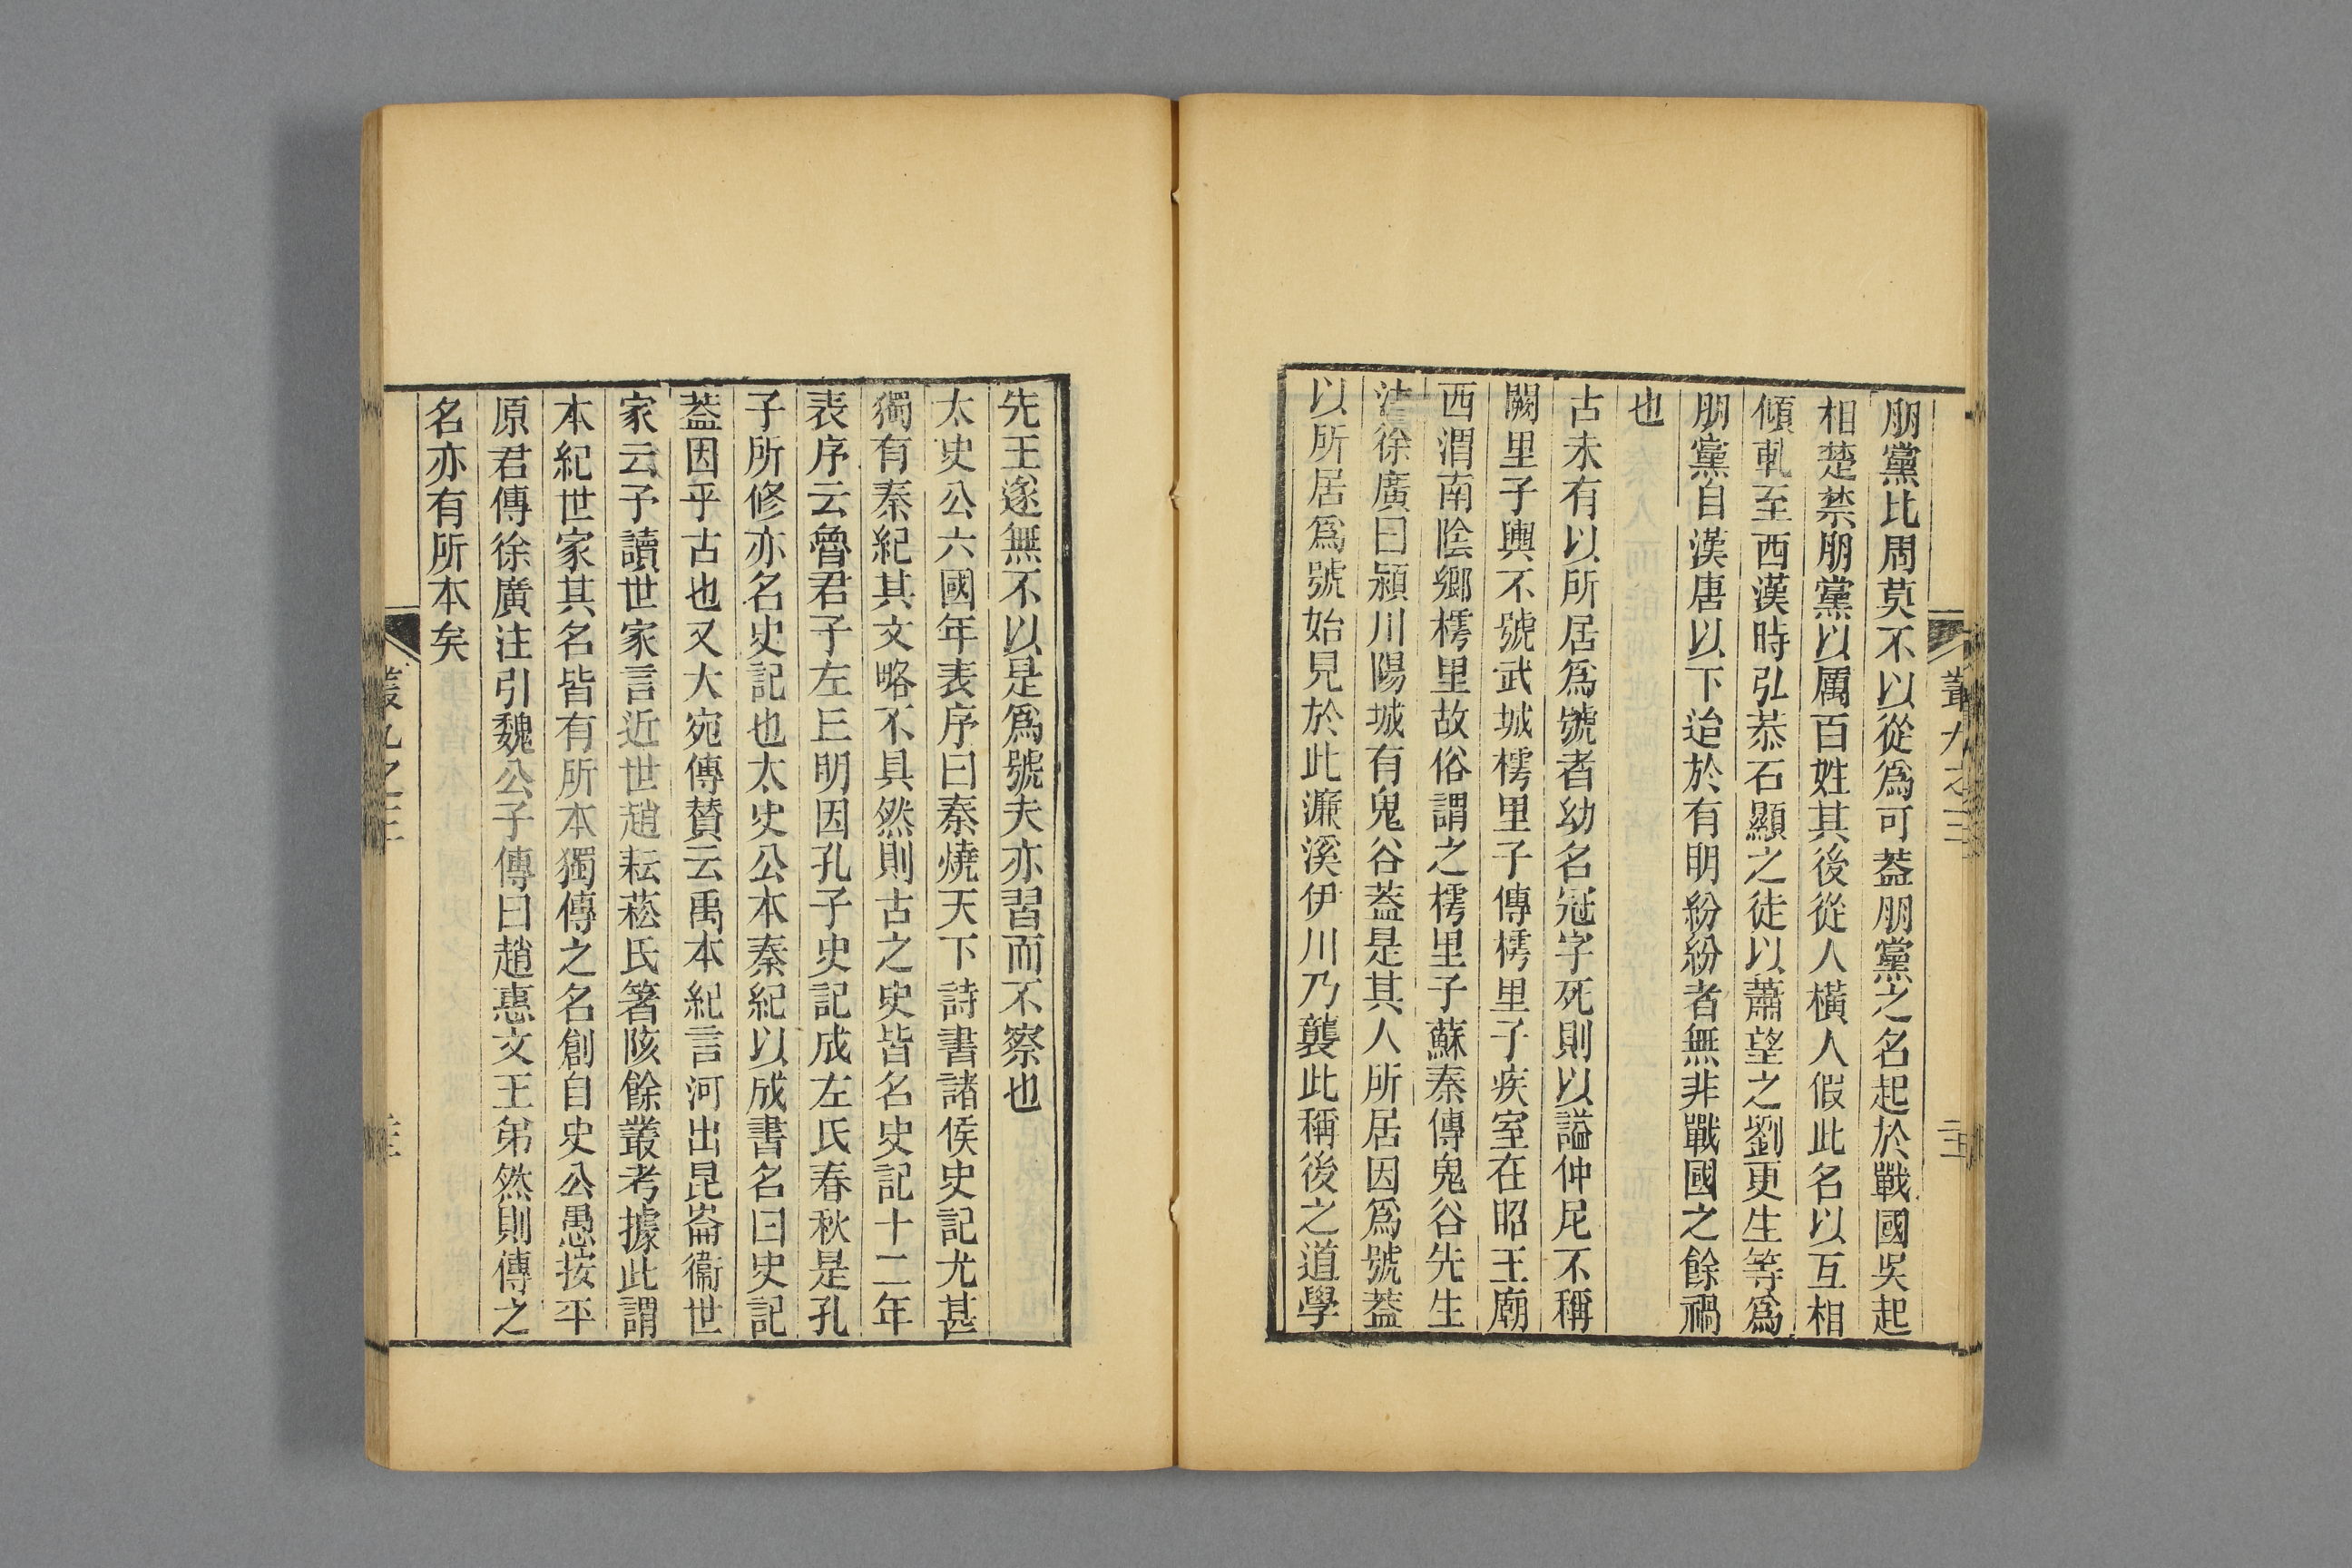 叢九之三
二五
朋黨比周莫不以從爲可蓋朋黨之名起於戰國吳起
相楚禁朋黨以厲百姓其後從人橫人假此名以互相
傾軋至西漢時弘恭石顯之徒以蕭望之劉更生等爲
朋黨自漢唐以下迨於有明紛紛者無非戰國之餘禍
也
古未有以所居爲號者幼名冠字死則以諡仲尼不稱
闕里子輿不號武城樗里子傳樗里子疾室在昭王廟
西渭南陰鄉樗里故俗謂之樗里子蘇秦傳鬼谷先生
注徐廣曰潁川陽城有鬼谷蓋是其人所居因爲號蓋
以所居爲號始見於此濂溪伊川乃襲此稱後之道學
先王遂無不以是爲號夫亦習而不察也
太史公六國年表序曰秦燒天下詩書諸侯史記尤甚
獨有秦紀其文略不具然則古之史皆名史記十二年
表序云魯君子左丘明因孔子史記成左氏春秋是孔
子所修亦名史記也太史公本秦紀以成書名曰史記
蓋因乎古也又大宛傳贊云禹本紀言河出昆崙衞世
家云予讀世家言近世趙耘菘氏箸陔餘叢考據此謂
本紀世家其名皆有所本獨傳之名創自史公愚按平
原君傳徐廣注引魏公子傳曰趙惠文王弟然則傳之
名亦有所本矣
叢九之三